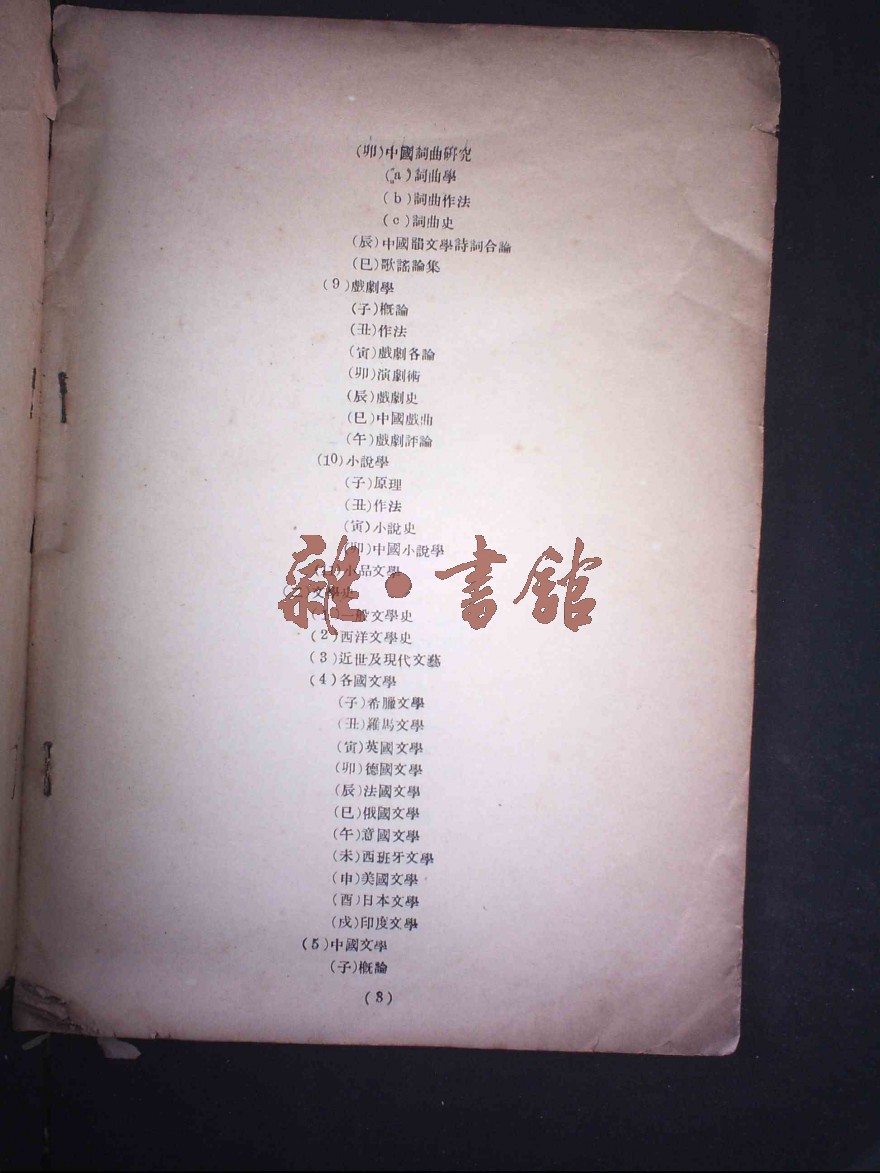 (卯)中國詞曲硏究
(a)詞曲學
(b)詞曲作法
(c)詞曲史
(辰)中國韻文學詩詞合論
(巳)歌謠論集
(9)戲劇學
(子)概論
(丑)作法
(寅)戲劇各論
(卯)演劇術
(辰)戲劇史
(巳)中國戲曲
(午)戲劇評論
(10)小說學
(子)原理
(丑)作法
(寅)小說史
(卯)中國小說學
小品文學
(二)文學史
(1)一般文學史
(2)西洋文學史
(3)近世及現代文藝
(4)各國文學
(子)希臘文學
(丑)羅馬文學
(寅)英國文學
(卯)德國文學
(辰)法國文學
(巳)俄國文學
(午)意國文學
(未)西班牙文學
(申)美國文學
(酉)日本文學
(戍)印度文學
(5)中國文學
(子)概論
(8)
雜·書館